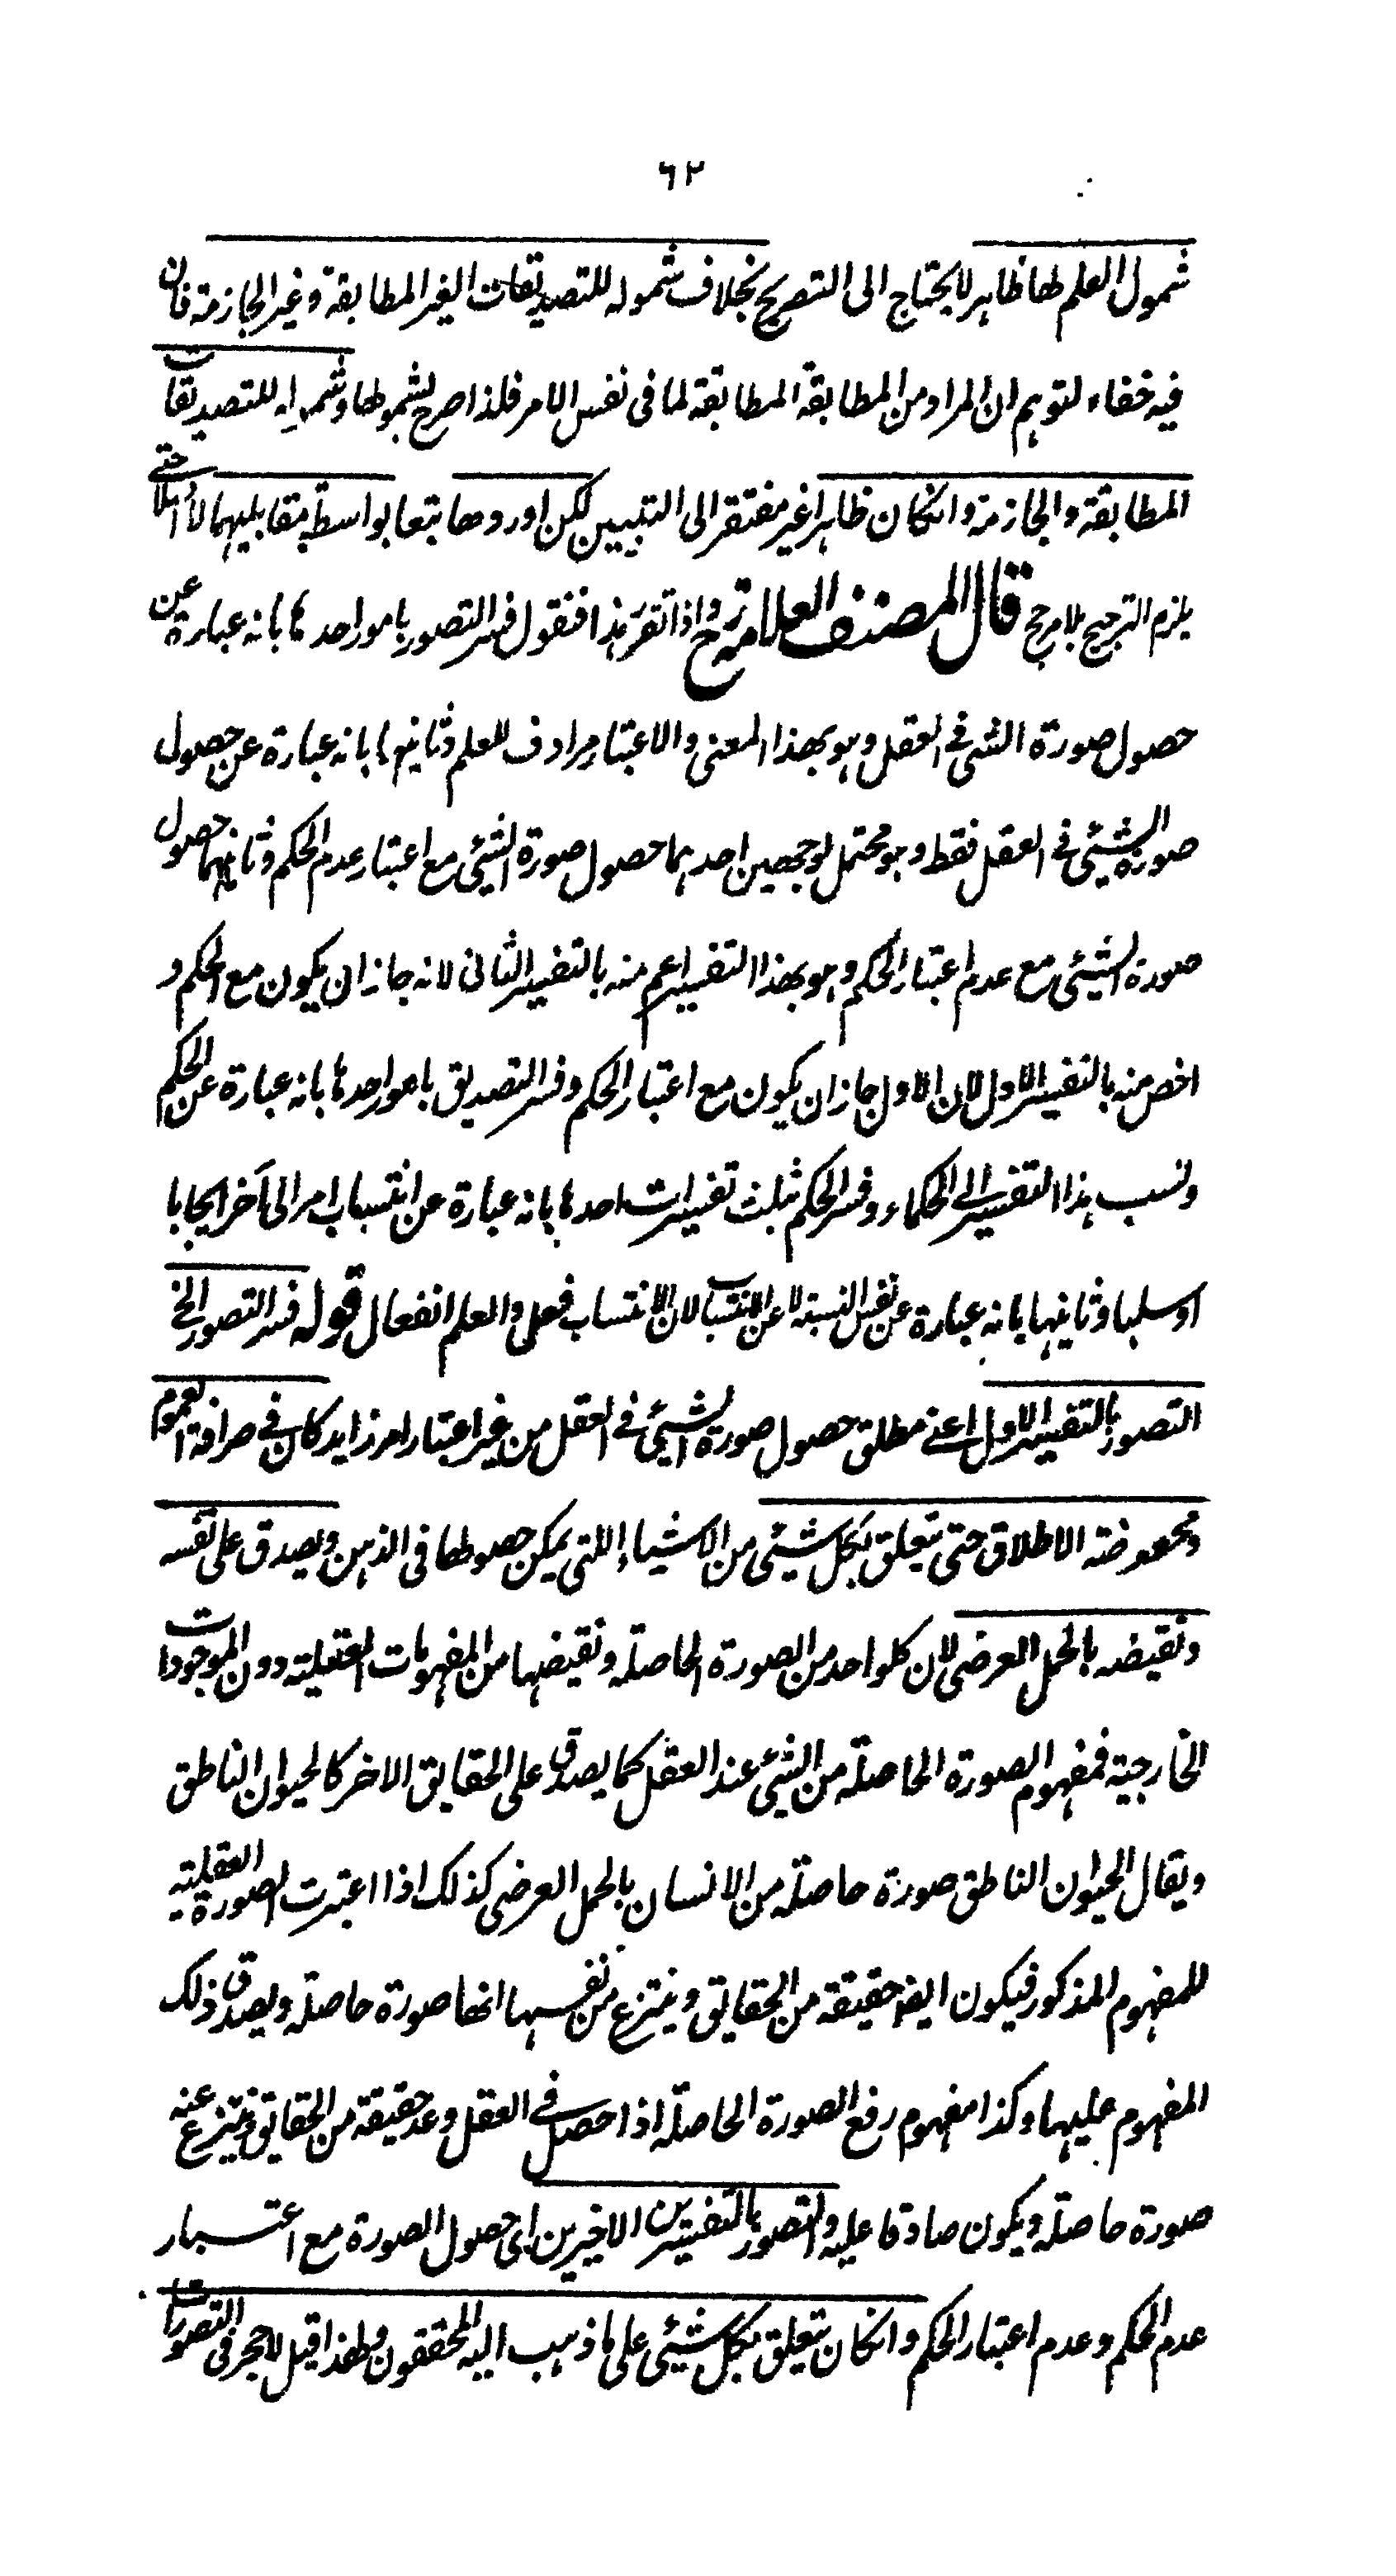 ٦٢
شمول العلم لها ظاهر لا يحتاج الى التصريح بخلاف شموله للتصديقات الغير المطابقة وغير الجازمة فان
فيه خفاء لتوهم ان المراد من المطابقة المطابقة لما فى نفس الامر فلذا صرح لشمولها وشموله للتصديقات
المطابقة والجازمة وانكان ظاهرا غير مفتقر الى التبيين لكن اوردها تبعا بواسطة مقابليهما لا اصلا حتى
يلزم الترجيح بلا مرجح قال المصنف العلامة رح واذا تقرر هذا فنقول فسر التصور بامور احدها بانه عبارة عن
حصول صورة الشئ فى العقل وهو بهذا المعنى والاعتبار مرادف للعلم وثانيها بانه عبارة عن حصول
صورة الشيئ فى العقل فقط وهو محتمل لوجهين احدهما حصول صورة الشيئ مع اعتبار عدم الحكم وثانيهما حصول
صورة الشيئ مع عدم اعتبار الحكم وهو بهذا التفسير اعم منه بالتفسير الثانى لانه جاز ان يكون مع الحكم و
اخص منه بالتفسير الاول لان الاول جاز ان يكون مع اعتبار الحكم وفسر التصديق بامور احدها بانه عبارة عن الحكم
ونسب هذا التفسير الى الحكماء وفسر الحكم بثلث تفسيرات احدها بانه عبارة عن انتساب امر الى آخر ايجابا
او سلبا وثانيها بانه عبارة عن نفس النسبة لا عن الانتساب لان الانتساب فعل والعلم انفعال قوله فسر التصور الخ
التصور بالتفسير الاول اعنے مطلق حصول صورة الشيئ فى العقل من غير اعتبار امر زايد كان فى صرافة العموم
ومحوضة الاطلاق حتى يتعلق بكل شيئ من الاشياء اللتى يمكن حصولها فى الذهن ويصدق على نفسه
ونقيضه بالحمل العرضى لان كلواحد من الصورة الحاصلة ونقيضها من المفهومات العقلية دون الموجودات
الخارجية فمفهوم الصورة الحاصلة من الشيئ عند العقل كما يصدق على الحقايق الاخر كالحيوان الناطق
ويقال الحيوان الناطق صورة حاصلة من الانسان بالحمل العرضى كذلك اذا اعتبرت الصورة العقلية
للمفهوم المذكور فيكون ايضا حقيقة من الحقايق وينتزع من نفسها انها صورة حاصلة ويصدق ذلك
المفهوم عليها وكذا مفهوم رفع الصورة الحاصلة اذا حصل فى العقل وعد حقيقة من الحقايق وينتزع عنه
صورة حاصلة ويكون صادقا عليه والتصور بالتفسيرين الاخيرين اى حصول الصورة مع اعتبار
عدم الحكم وعدم اعتبار الحكم وانكان يتعلق بكل شيئ على ما ذهب اليه المحققون ولهذا قيل لا حجر فى التصورات